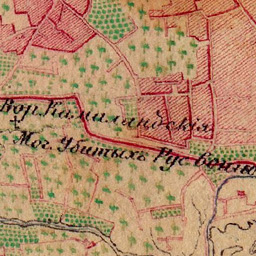 Вор. Камиландскія
Мог. Убитыхъ Рус.